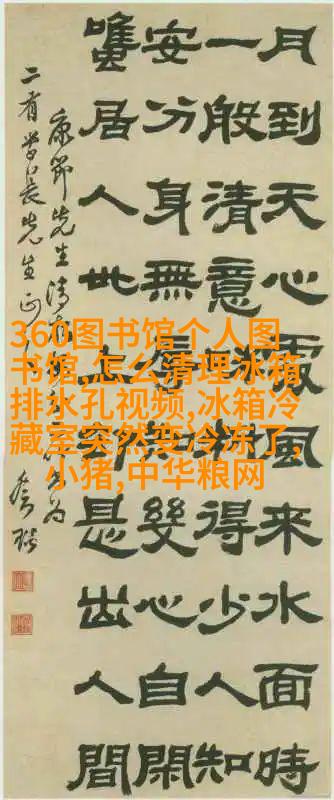 月到天心處風來水面時
一般清意料得少人知
安分身無辱知幾心自閑
雖居人世上却是出人間
康節先生清
二有学長先生正
360图书馆个人图
书馆,怎么清理冰箱
排水孔视频,冰箱冷
藏室突然变冷冻了,
小猪,中华粮网